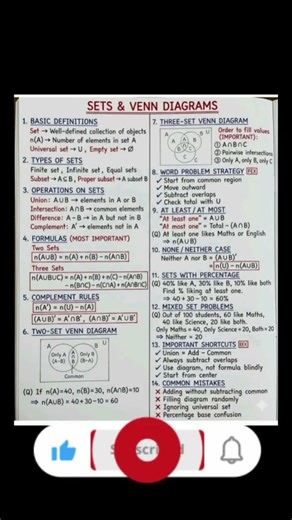 SETS & VENN DIAGRAMS
1. BASIC DEFINITIONS
Set → Well-defined collection of objects
n(A) → Number of elements in set A
Universal set → U , Empty set → Ø
2. TYPES OF SETS
Finite set , Infinite set, Equal sets
Subset → A ⊆ B , Proper subset → A subset B
3. OPERATIONS ON SETS
Union: A∪B → elements in A or B
Intersection: A∩B → common elements
Difference: A−B → in A but not in B
Complement: A' → elements not in A
4. FORMULAS (MOST IMPORTANT)
Two Sets
n(A∪B) = n(A) + n(B) − n(A∩B)
Three Sets
n(A∪B∪C) = n(A) + n(B) + n(C)−n(A∩B)
−n(B∩C) −n(C∩A) + n(A∩B∩C)
5. COMPLEMENT RULES
n(A') = n(U) − n(A)
(A∪B)' = A'∩B', (A∩B)' = A'∪B'
6. TWO-SET VENN DIAGRAM
A B U
Only A
(A−B)
Only B
(B−A)
Common
(Q) If n(A)=40, n(B)=30, n(A∩B)=10
⇒ n(A∪B) = 40+30−10 = 60
7. THREE-SET VENN DIAGRAM
A B U
C
Order to fill values
(IMPORTANT):
① A∩B∩C
② Pairwise intersections
③ Only A, only B, only C
8. WORD PROBLEM STRATEGY
✓ Start from common region
✓ Move outward
✓ Subtract overlaps
✓ Check total with U
9. AT LEAST / AT MOST
"At least one" = A∪B
"At most one" = Total − (A∩B)
(Q) At least one likes Maths or English
⇒ n(A∪B)
10. NONE / NEITHER CASE
Neither A nor B = (A∪B)'
= n(U) − n(A∪B)
11. SETS WITH PERCENTAGE
(Q) 40% like A, 30% like B, 10% like both
Find % liking at least one.
⇒ 40 + 30 − 10 = 60%
12. MIXED SET PROBLEMS
(Q) Out of 100 students, 60 like Maths,
40 like Science, 20 like both.
Only Maths = 40, Only Science = 20, Both = 20
⇒ Neither = 20
13. IMPORTANT SHORTCUTS
✓ Union = Add − Common
✓ Always subtract overlaps
✓ Use diagram, not formula blindly
✓ Start from center
14. COMMON MISTAKES
✗ Adding without subtracting common
✗ Filling diagram randomly
✗ Ignoring universal set
✗ Percentage base confusion